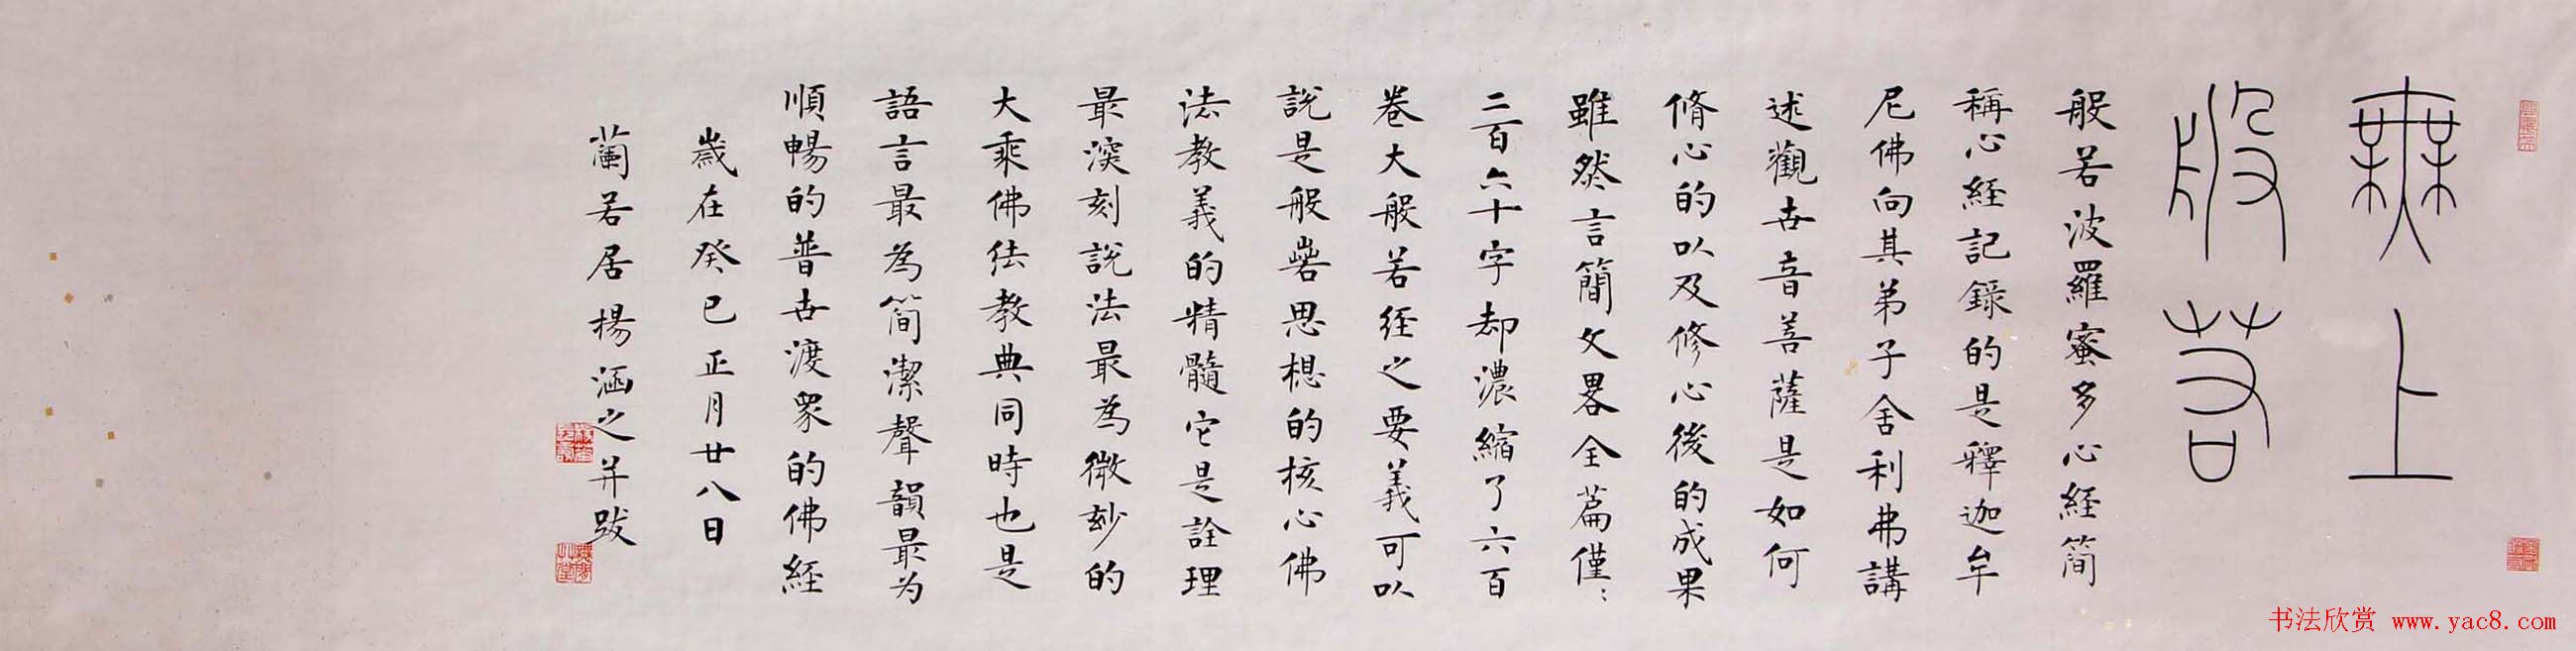 無上
般若
般若波羅蜜多心経简
稱心経記錄的是釋迦牟
尼佛向其弟子舍利弗講
述觀世音菩薩是如何
脩心的以及修心後的成果
雖然言簡文畧全篇僅：
二百六十字却濃縮了六百
卷大般若経之要義可以
説是般若思想的核心佛
法教義的精髓它是詮理
最深刻説法最為微妙的
大乘佛法教典同時也是
語言最為简潔聲韻最为
順暢的普世渡衆的佛経
歲在癸巳正月廿八日
蘭若居楊涵之并跋
书法欣赏 www.yac8.com